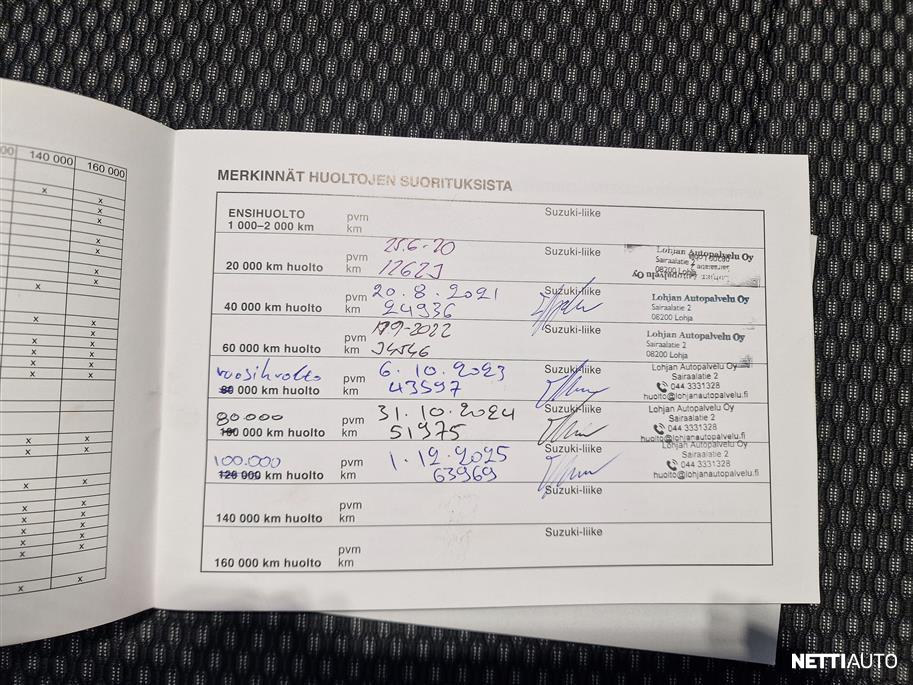 140 000 160 000
MERKINNÄT HUOLTOJEN SUORITUKSISTA
ENSIHUOLTO pvm Suzuki-liike
1 000–2 000 km km
25.6-20 Suzuki-liike Lohjan Autopalvelu Oy
pvm Sairaalatie 2
20 000 km huolto km 12623 08200 Lohja
pvm 20.8.2021 Suzuki-liike Lohjan Autopalvelu Oy
40 000 km huolto km 24936 Sairaalatie 2
08200 Lohja
pvm 17.9-2022 Suzuki-liike Lohjan Autopalvelu Oy
60 000 km huolto km 34546 Sairaalatie 2
08200 Lohja
vuosihuolto pvm 6.10.2023 Suzuki-liike Lohjan Autopalvelu Oy
80 000 km huolto km 43597 Sairaalatie 2
044 3331328
huolto@lohjanautopalvelu.fi
80.000 pvm 31.10.2024 Suzuki-liike Lohjan Autopalvelu Oy
100 000 km huolto km 51975 Sairaalatie 2
044 3331328
huolto@lohjanautopalvelu.fi
100.000 pvm 1.12.2025 Suzuki-liike Lohjan Autopalvelu Oy
120 000 km huolto km 63969 Sairaalatie 2
044 3331328
huolto@lohjanautopalvelu.fi
pvm Suzuki-liike
140 000 km huolto km
pvm Suzuki-liike
160 000 km huolto km
NETTIAUTO